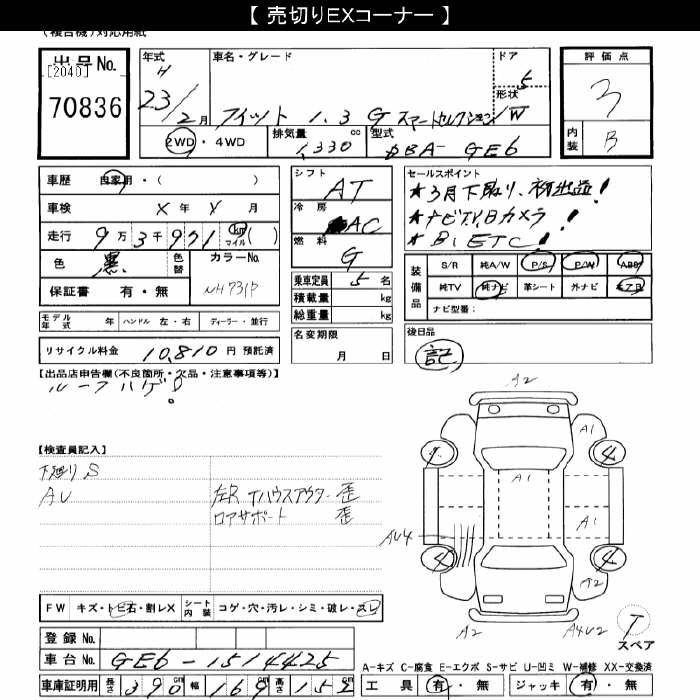 【 売切りEXコーナー 】
(複合機)対応用紙
出品No. [2040] 70836
年式 H 23/2月
車名・グレード フィット 1.3 G スマートセレクション
ドア 5
形状 /W
2WD・4WD
排気量 1,330 cc
型式 DBA- GE6
評価点 3
内装 B
車歴 自家用・( )
車検 X年 X月
走行 9万3千971 km マイル ( )
色 黒 色替 カラーNo. NH731P
保証書 有・無
モデル年式 年 ハンドル 左・右 ディーラー・並行
リサイクル料金 10,810円 預託済
シフト AT
冷房 AC
燃料 G
乗車定員 5名
積載量 kg
総重量 kg
名変期限 月 日
セールスポイント
★3月下取り、初出品!
★ナビTVBカメラ!
★B,ETC!
装備品 S/R 純A/W P/S P/W ABS
純TV 純ナビ 革シート 外ナビ エアB
ナビ型番:
後日品
記
【出品店申告欄(不良箇所・欠品・注意事項等)】
ルーフハゲ
【検査員記入】
下廻りS
AU 左R Tハウスアウター 歪
ロアサポート 歪
FW キズ・トビ石・割レX シート内装 コゲ・穴・汚レ・シミ・破レ・スレ
登録No.
車台No. GE6-1514425
車庫証明用 長さ 390cm 幅 169cm 高さ 152cm
A2
A1
4
4
A1
A1
AU4
4
4
A2
A2
A4U2
T
スペア
A-キズ C-腐食 E-エクボ S-サビ U-凹ミ W-補修 XX-交換済
工具 有・無 ジャッキ 有・無